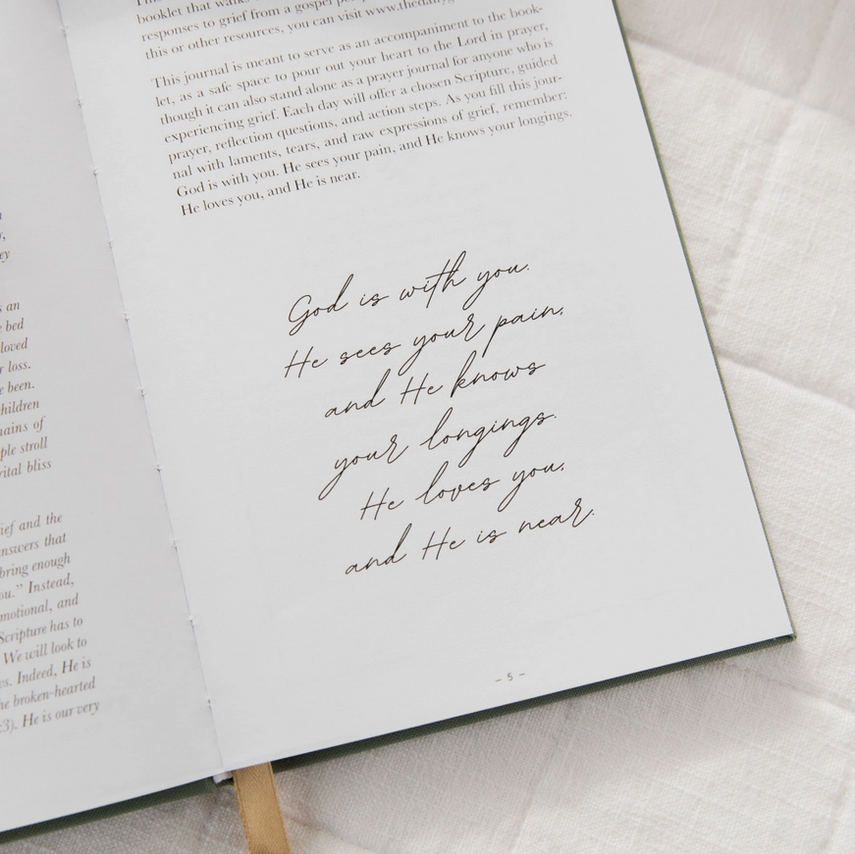 s an
bed
loved
loss.
been.
hildren
ains of
ple stroll
rital bliss
ief and the
nswers that
bring enough
ou." Instead,
motional, and
Scripture has to
We will look to
Indeed, He is
he broken-hearted
:3). He is our very
booklet that walks
responses to grief from a gospel
this or other resources, you can visit www.thedaily
This journal is meant to serve as an accompaniment to the book-
let, as a safe space to pour out your heart to the Lord in prayer,
though it can also stand alone as a prayer journal for anyone who is
experiencing grief. Each day will offer a chosen Scripture, guided
prayer, reflection questions, and action steps. As you fill this jour-
nal with laments, tears, and raw expressions of grief, remember:
God is with you. He sees your pain, and He knows your longings.
He loves you, and He is near.
God is with you.
He sees your pain,
and He knows
your longings.
He loves you,
and He is near.
– 5 –